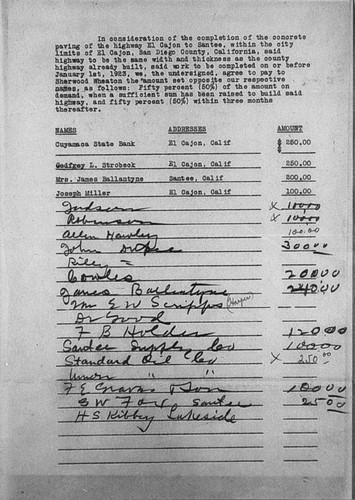 In consideration of the completion of the concrete
paving of the highway El Cajon to Santee, within the city
limits of El Cajon, San Diego County, California, said
highway to be the same width and thickness as the county
highway already built, said work to be completed on or before
January 1st, 1923, we, the undersigned, agree to pay to
Sherwood Wheaton the amount set opposite our respective
names, as follows: Fifty percent (50%) of the amount on
demand, when a sufficient sum has been raised to build said
highway, and fifty percent (50%) within three months
thereafter.
NAMES ADDRESSES AMOUNT
Cuyamaca State Bank El Cajon, Calif $ 250.00
Godfrey L. Strobeck El Cajon, Calif 250.00
Mrs. James Ballantyne Santee, Calif 200.00
Joseph Miller El Cajon, Calif 100.00
Judson X 100.00
Robinson X 100.00
Allen Hawley 100.00
John 300.00
Riley =
Cowles 200.00
James Ballantyne
Mr E W Scripps (Harper)
Dr Good
F B Holder 120.00
Santee Supply Co 100.00
Standard Oil Co X 250.00
Union " "
F E Graves & Son 100.00
S W Fox Santee 25.00
H S Kibbey Lakeside